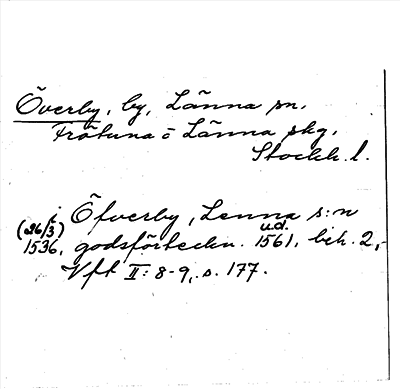 Överby, by, Länna sn,
Frötuna o Länna skg,
Stockh. l.
i Öfverby, Lenna s:n
(26/3) 1536, godsförteckn. u.d. 1561, bih. 2,
Vfk II: 8-9, s. 177.